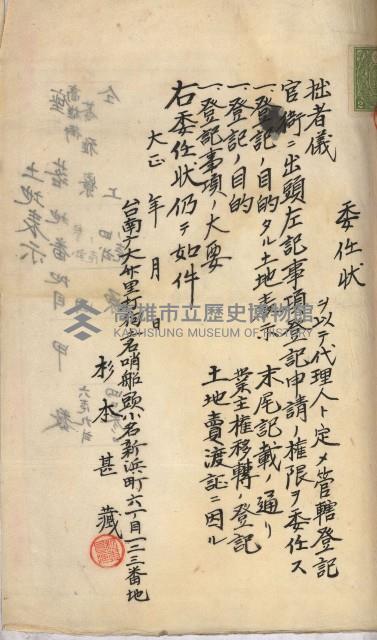 委任状
拙者儀　　　　ヲ以テ代理人ト定メ管轄登記
官衙ニ出頭左記事項登記申請ノ権限ヲ委任ス
一、登記ノ目的タル土地表示　末尾記載ノ通リ
一、登記ノ目的　業主権移轉ノ登記
一、登記事項ノ大要　土地賣渡証ニ因ル
右委任状仍テ如件
大正　年　月　日
台南廳大竹里打狗名哨船頭小名新浜町六丁目一二三番地
杉本甚藏
高雄市立歷史博物館
KAOHSIUNG MUSEUM OF HISTORY
土地表示